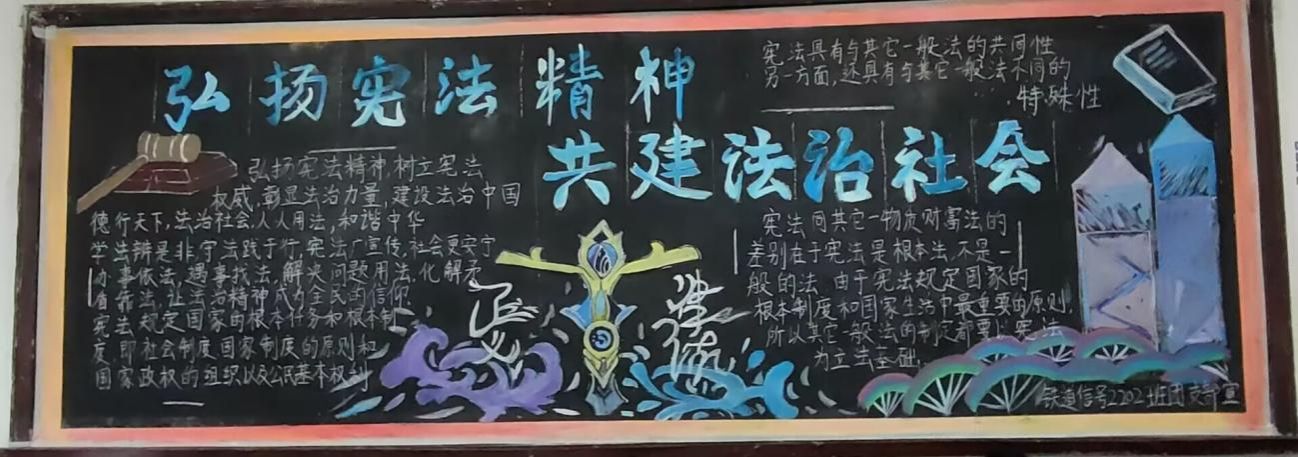 弘扬宪法精神
共建法治社会
弘扬宪法精神,树立宪法
权威,彰显法治力量,建设法治中国
德行天下,法治社会,人人用法,和谐中华
学法辨是非,守法践于行,宪法广宣传,社会更安宁
办事依法,遇事找法,解决问题用法,化解矛
盾靠法,让法治精神成为全民的信仰.
宪法规定国家的根本任务和根本制
度,即社会制度,国家制度的原则和
国家政权的组织以及公民基本权利
正义
宪法具有与其它一般法的共同性
另一方面,还具有与其它一般法不同的
特殊性
宪法同其它一物质财富法的
差别在于宪法是根本法,不是一
般的法.由于宪法规定国家的
根本制度和国家生活中最重要的原则,
所以其它一般法的制定都要以宪法
为立法基础.
铁道信号2202班团支部宣